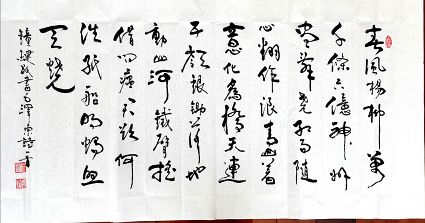 春風楊柳萬
千條六億神州
盡舜堯紅雨隨
心翻作浪青山著
意化為橋天連
五嶺銀鋤落地
動三河鐵臂搖
借問瘟君欲何
往紙船明燭照
天燒
書毛澤東詩一首